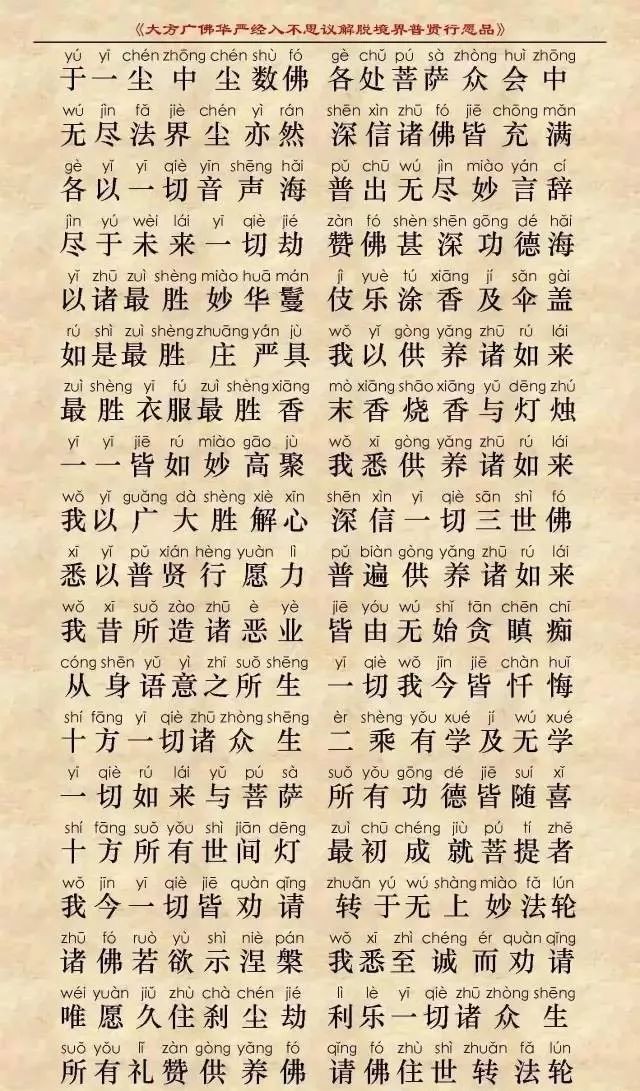 《大方广佛华严经入不思议解脱境界普贤行愿品》
yú yī chén zhōng chén shù fó gè chǔ pú sà zhòng huì zhōng
于一尘中尘数佛 各处菩萨众会中
wú jìn fǎ jiè chén yì rán shēn xìn zhū fó jiē chōng mǎn
无尽法界尘亦然 深信诸佛皆充满
gè yǐ yī qiè yīn shēng hǎi pǔ chū wú jìn miào yán cí
各以一切音声海 普出无尽妙言辞
jìn yú wèi lái yī qiè jié zàn fó shèn shēn gōng dé hǎi
尽于未来一切劫 赞佛甚深功德海
yǐ zhū zuì shèng miào huā mán jì yuè tú xiāng jí sǎn gài
以诸最胜妙华鬘 伎乐涂香及伞盖
rú shì zuì shèng zhuāng yán jù wǒ yǐ gòng yǎng zhū rú lái
如是最胜庄严具 我以供养诸如来
zuì shèng yī fú zuì shèng xiāng mò xiāng shāo xiāng yǔ dēng zhú
最胜衣服最胜香 末香烧香与灯烛
yī yī jiē rú miào gāo jù wǒ xī gòng yǎng zhū rú lái
一一皆如妙高聚 我悉供养诸如来
wǒ yǐ guǎng dà shèng xiè xīn shēn xìn yī qiè sān shì fó
我以广大胜解心 深信一切三世佛
xī yǐ pǔ xián hèng yuàn lì pǔ biàn gòng yǎng zhū rú lái
悉以普贤行愿力 普遍供养诸如来
wǒ xī suǒ zào zhū è yè jiē yóu wú shǐ tān chēn chī
我昔所造诸恶业 皆由无始贪瞋痴
cóng shēn yǔ yì zhī suǒ shēng yī qiè wǒ jīn jiē chàn huǐ
从身语意之所生 一切我今皆忏悔
shí fāng yī qiè zhū zhòng shēng èr shèng yǒu xué jí wú xué
十方一切诸众生 二乘有学及无学
yī qiè rú lái yǔ pú sà suǒ yǒu gōng dé jiē suí xǐ
一切如来与菩萨 所有功德皆随喜
shí fāng suǒ yǒu shì jiān dēng zuì chū chéng jiù pú tí zhě
十方所有世间灯 最初成就菩提者
wǒ jīn yī qiè jiē quàn qǐng zhuǎn yú wú shàng miào fǎ lún
我今一切皆劝请 转于无上妙法轮
zhū fó ruò yù shì niè pán wǒ xī zhì chéng ér quàn qǐng
诸佛若欲示涅槃 我悉至诚而劝请
wéi yuàn jiǔ zhù chà chén jié lì lè yī qiè zhū zhòng shēng
唯愿久住刹尘劫 利乐一切诸众生
suǒ yǒu lǐ zàn gòng yǎng fó qǐng fó zhù shì zhuǎn fǎ lún
所有礼赞供养佛 请佛住世转法轮